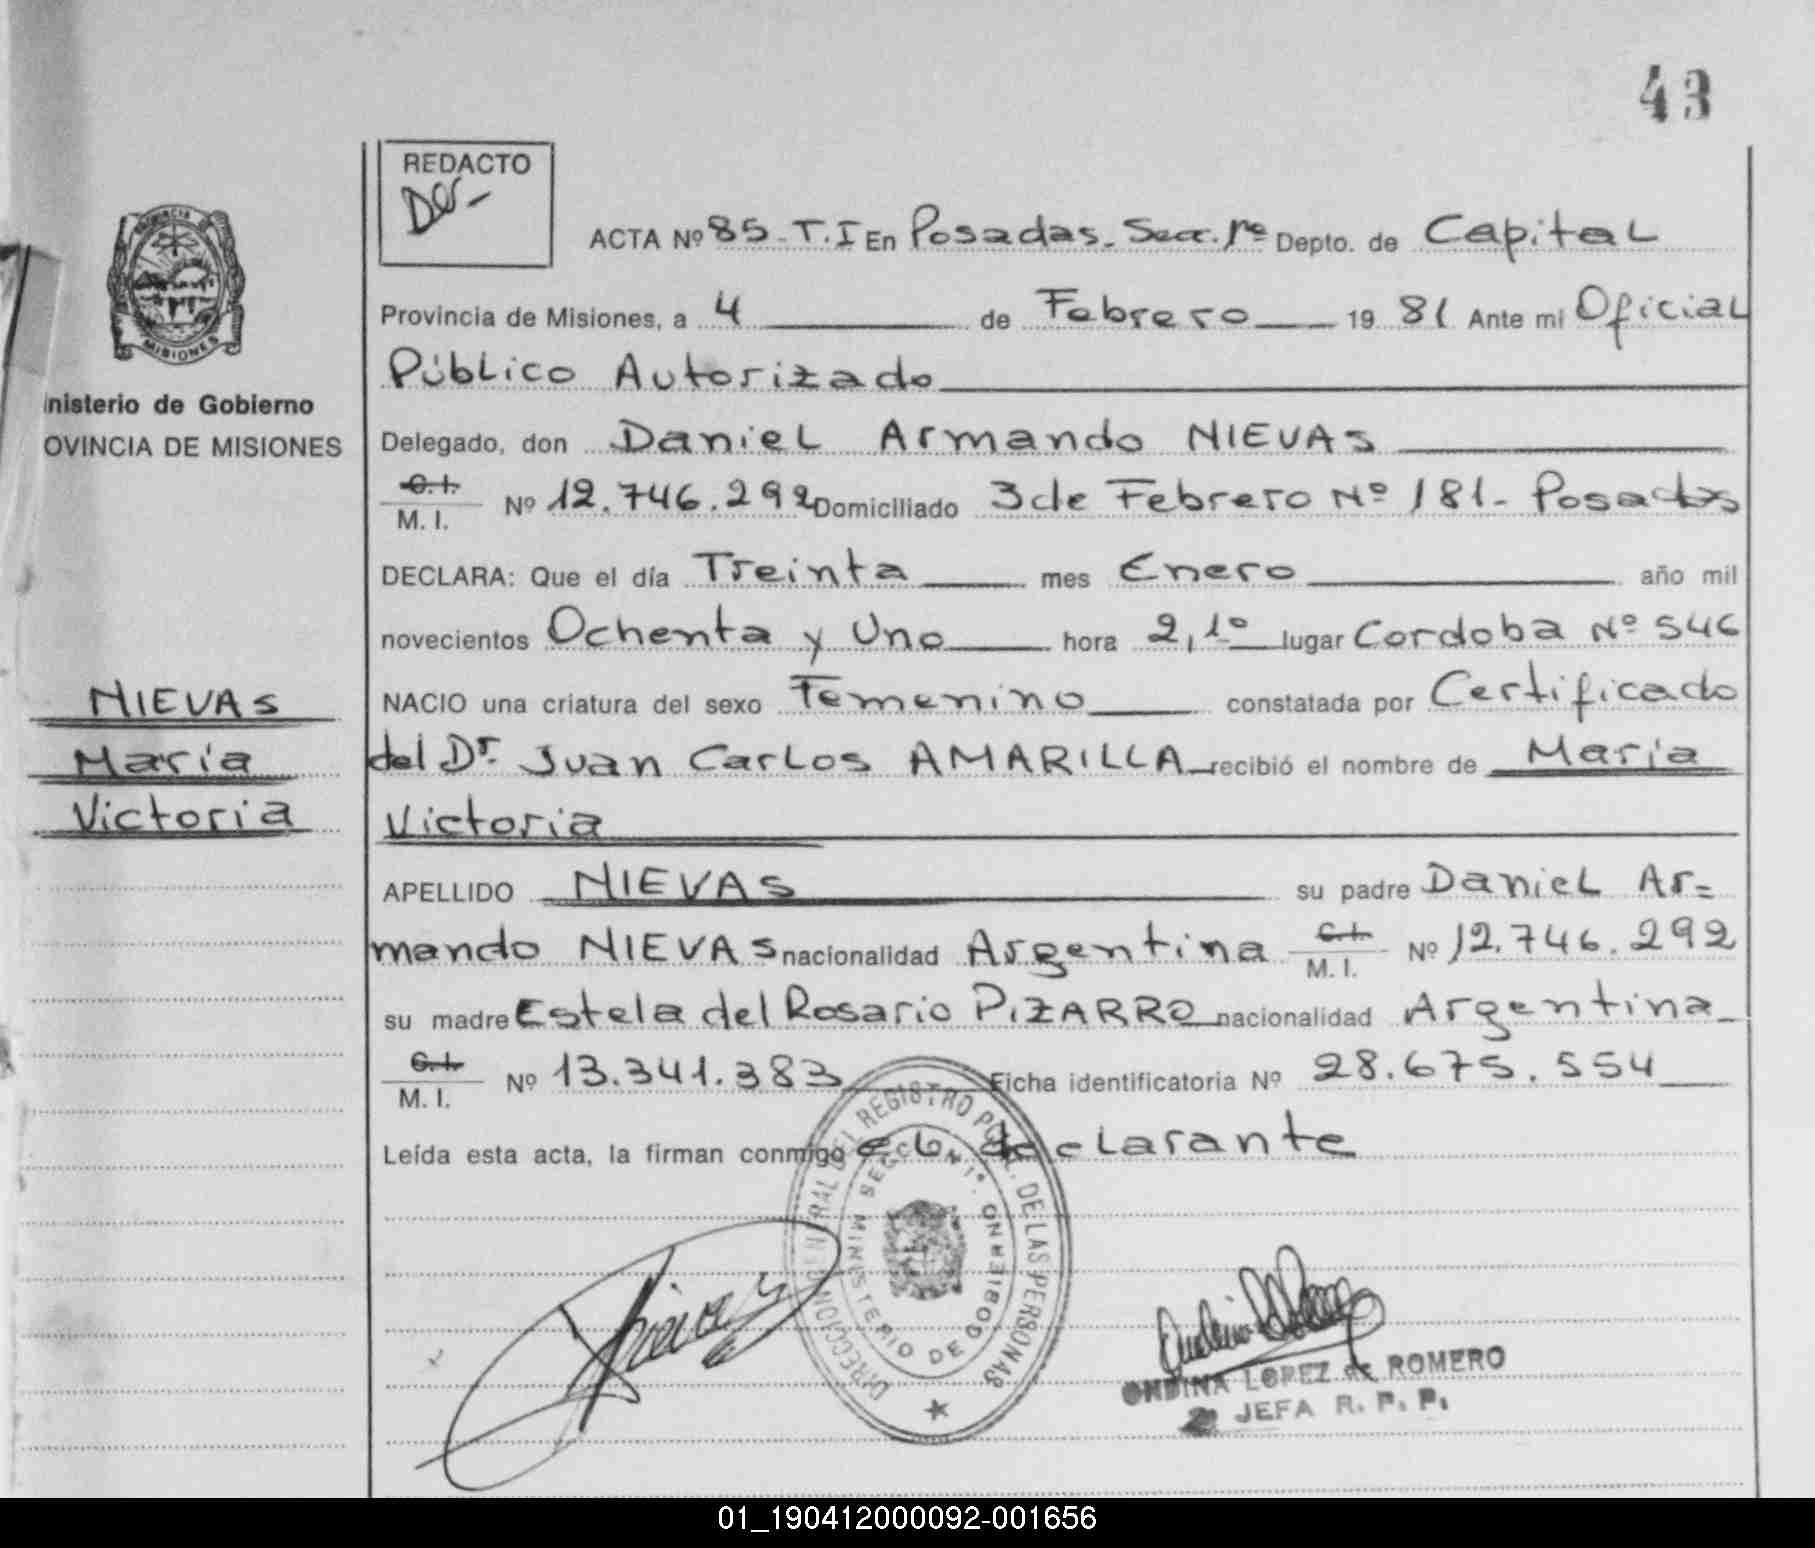 43
REDACTO
ACTA Nº 85-T.I En Posadas. Secc. 1ª Depto. de Capital
Provincia de Misiones, a 4 de Febrero 19 81 Ante mi Oficial
Público Autorizado
Delegado, don Daniel Armando NIEVAS
C. I. M. I. Nº 12.746.292 Domiciliado 3 de Febrero Nº 181- Posadas
DECLARA: Que el día Treinta mes Enero año mil
novecientos Ochenta y Uno hora 2,1º lugar Cordoba Nº 546
NACIO una criatura del sexo Femenino constatada por Certificado
del Dr. Juan Carlos AMARILLA recibió el nombre de María
Victoria
APELLIDO NIEVAS su padre Daniel Ar=
mando NIEVAS nacionalidad Argentina C. I. M. I. Nº 12.746.292
su madre Estela del Rosario PIZARRO nacionalidad Argentina
C. I. M. I. Nº 13.341.383 Ficha identificatoria Nº 28.675.554
Leída esta acta, la firman conmigo el declarante
PROVINCIA
MISIONES
inisterio de Gobierno
OVINCIA DE MISIONES
NIEVAS
María
Victoria
DIRECCION GENERAL DEL REGISTRO PCIAL. DE LAS PERSONAS
SECCION 1ª.
MINISTERIO DE GOBIERNO
Nievas
ONDINA LOPEZ de ROMERO
JEFA R. P. P.
01_190412000092-001656